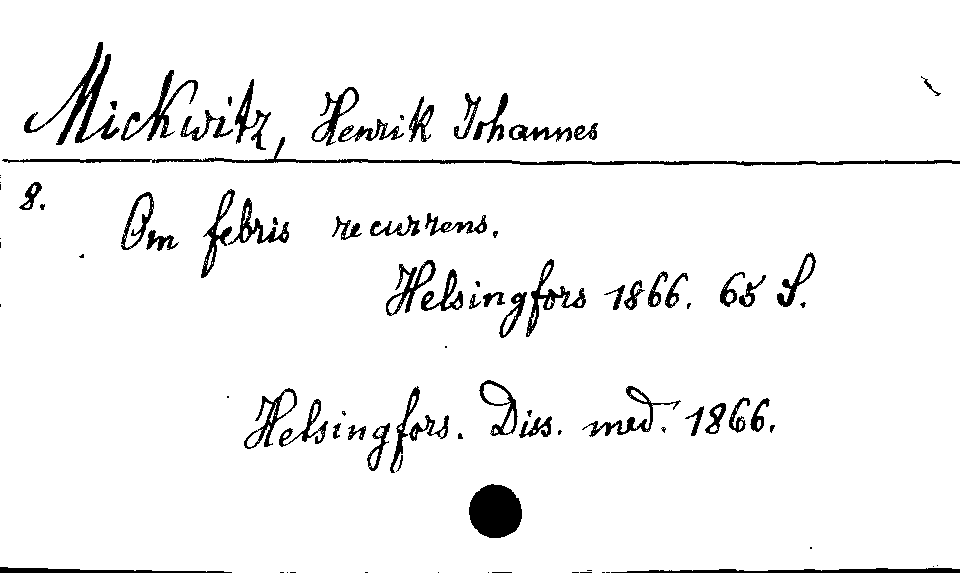 Mickwitz, Henrik Johannes
8.
Om febris recurrens.
Helsingfors 1866. 65 S.
Helsingfors. Diss. med. 1866.